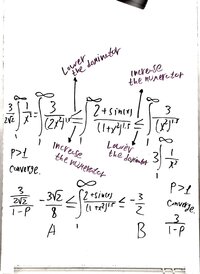 Lower the dominator
Increase the numerator
3/(2√2) ∫₁^∞ 1/x³ = ∫₁^∞ 3/(2x²)^1.5 ≤ ∫₁^∞ (2+sin(x))/(1+x²)^1.5 ≤ ∫₁^∞ 3/(x²)^1.5
Increase the numerator
Lower the dominator
3 ∫₁^∞ 1/x³
P>1
converge.
P>1
converge
(3/(2√2))/(1-P)
-3√2/8 ≤ ∫₁^∞ (2+sin(x))/(1+x²)^1.5 ≤ -3/2
3/(1-P)
A
B